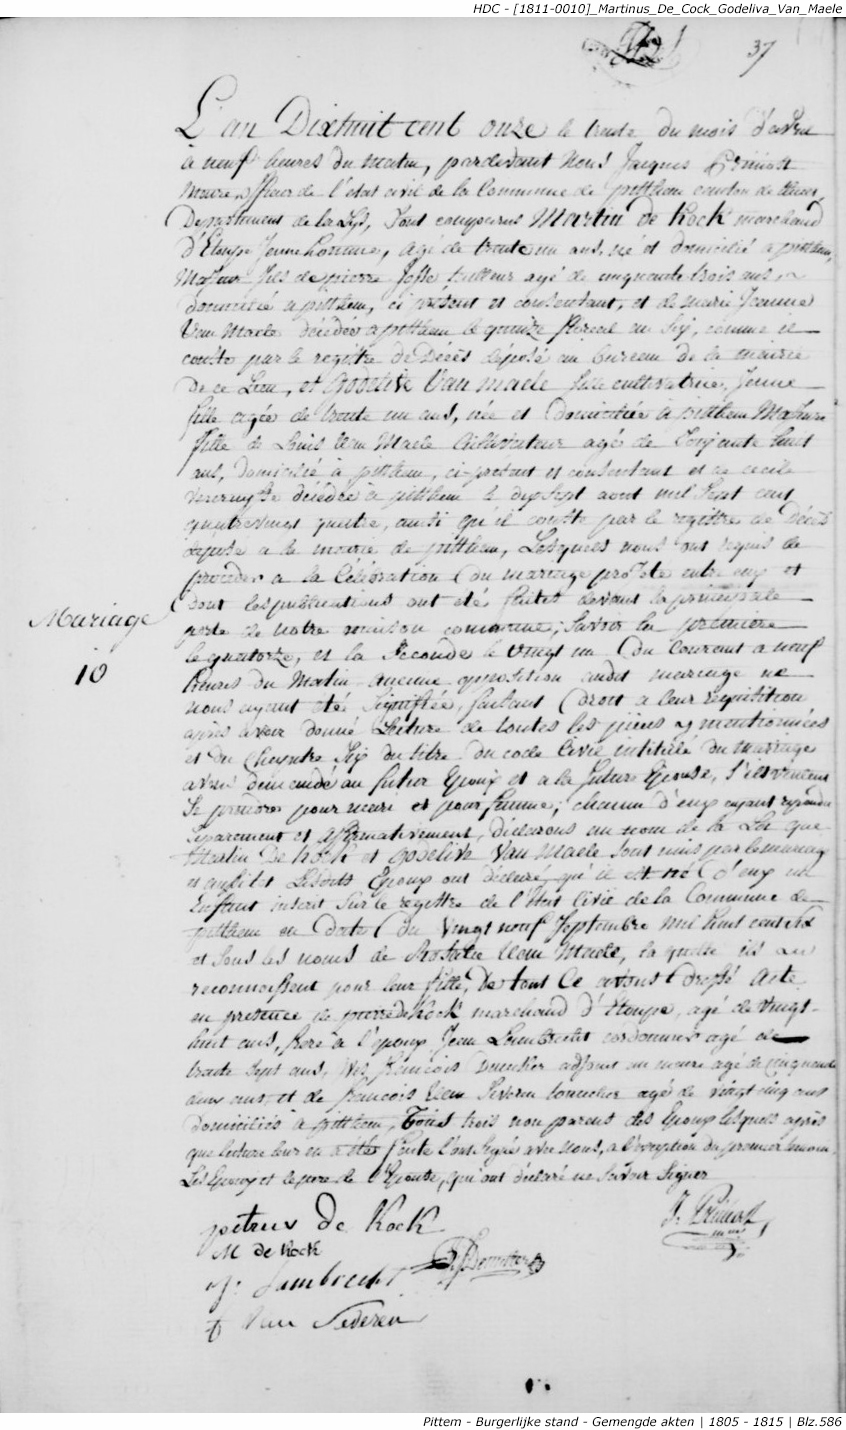 HDC - [1811-0010]_Martinus_De_Cock_Godeliva_Van_Maele
37
L'an Dixhuit cent onze le trente du mois d'avril
à neuf heures du matin, pardevant Nous Jacques
Maire, officier de l'état civil de la Commune de pitthem canton de
Departement de la Lys, sont comparus Martin De Kock marchand
d'Etoupe Jeune homme, agé de trente un ans, né et domicilié a pitthem,
Majeur fils de pierre Joffe tailleur agé de cinquante trois ans,
domicilié a pitthem, ci présent et consentant, et de marie Jeanne
Van Maele décédée a pitthem le quinze floreal an six, comme il
conste par le registre de Décès déposé au bureau de la mairie
De ce Lieu, et Godelive Van maele cultivatrice, Jeune
fille agée de trente un ans, née et Domiciliée à pitthem Majeure
fille de Louis Van Maele Cultivateur agé de Soixante huit
ans, domicilié à pitthem, ci-présent et consentant et de cecile
décédée à pitthem le dix sept aout mil sept cent
quatrevingt quatre, ainsi qu'il conste par le registre de Décès
déposé a la mairie de pitthem, Lesquels nous ont requis de
proceder a la Célébration du mariage projeté entre eux et
Dont les publications ont été faites devant la principale
porte de notre maison commune; savoir la premiere
le quatorze, et la seconde le vingt un du courant a neuf
heures du Matin aucune opposition audit mariage ne
nous ayant été signifiée, faisant droit a leur requisition
après avoir donné lecture de toutes les pieces y mentionnées
et du Chapitre Six du titre du code Civil intitulé du mariage
avons demandé au futur Epoux et a la future Epouse, s'ils veulent
se prendre pour mari et pour femme; chacun d'eux ayant repondu
séparement et affirmativement, déclarons au nom de la Loi que
Martin De Kock et Godelive Van Maele sont unis par le mariage
et aussitot Lesdits Epoux ont déclaré qu'il est né d'eux un
Enfant inscrit sur le registre de l'Etat Civil de la Commune de
pitthem en Date du vingt neuf Septembre mil huit cent
et sous les noms de Rosalie Van Maele, laquelle ils
reconnoissent pour leur fille, De tout Ce avons dressé Acte
en presence de pierre de Kock marchand d'Etoupe, agé de vingt-
huit ans, frere à l'epoux Jean Lambrecht cordonnier agé de
trente sept ans, françois Demeulier adjoint au maire agé de cinquante
deux ans et de françois Van Sederen agé de vingt cinq ans
domiciliés à pitthem, Tous trois non parent des Epoux lesquels après
que lecture leur en a été faite l'ont signé avec nous, a l'exception du premier temoin
Les Epoux et le pere de l'Epouse, qui ont déclaré ne savoir signer
Mariage
10
petrus De Kock
M de Kock
J: Lambrecht
F Van Sederen
Pittem - Burgerlijke stand - Gemengde akten | 1805 - 1815 | Blz.586